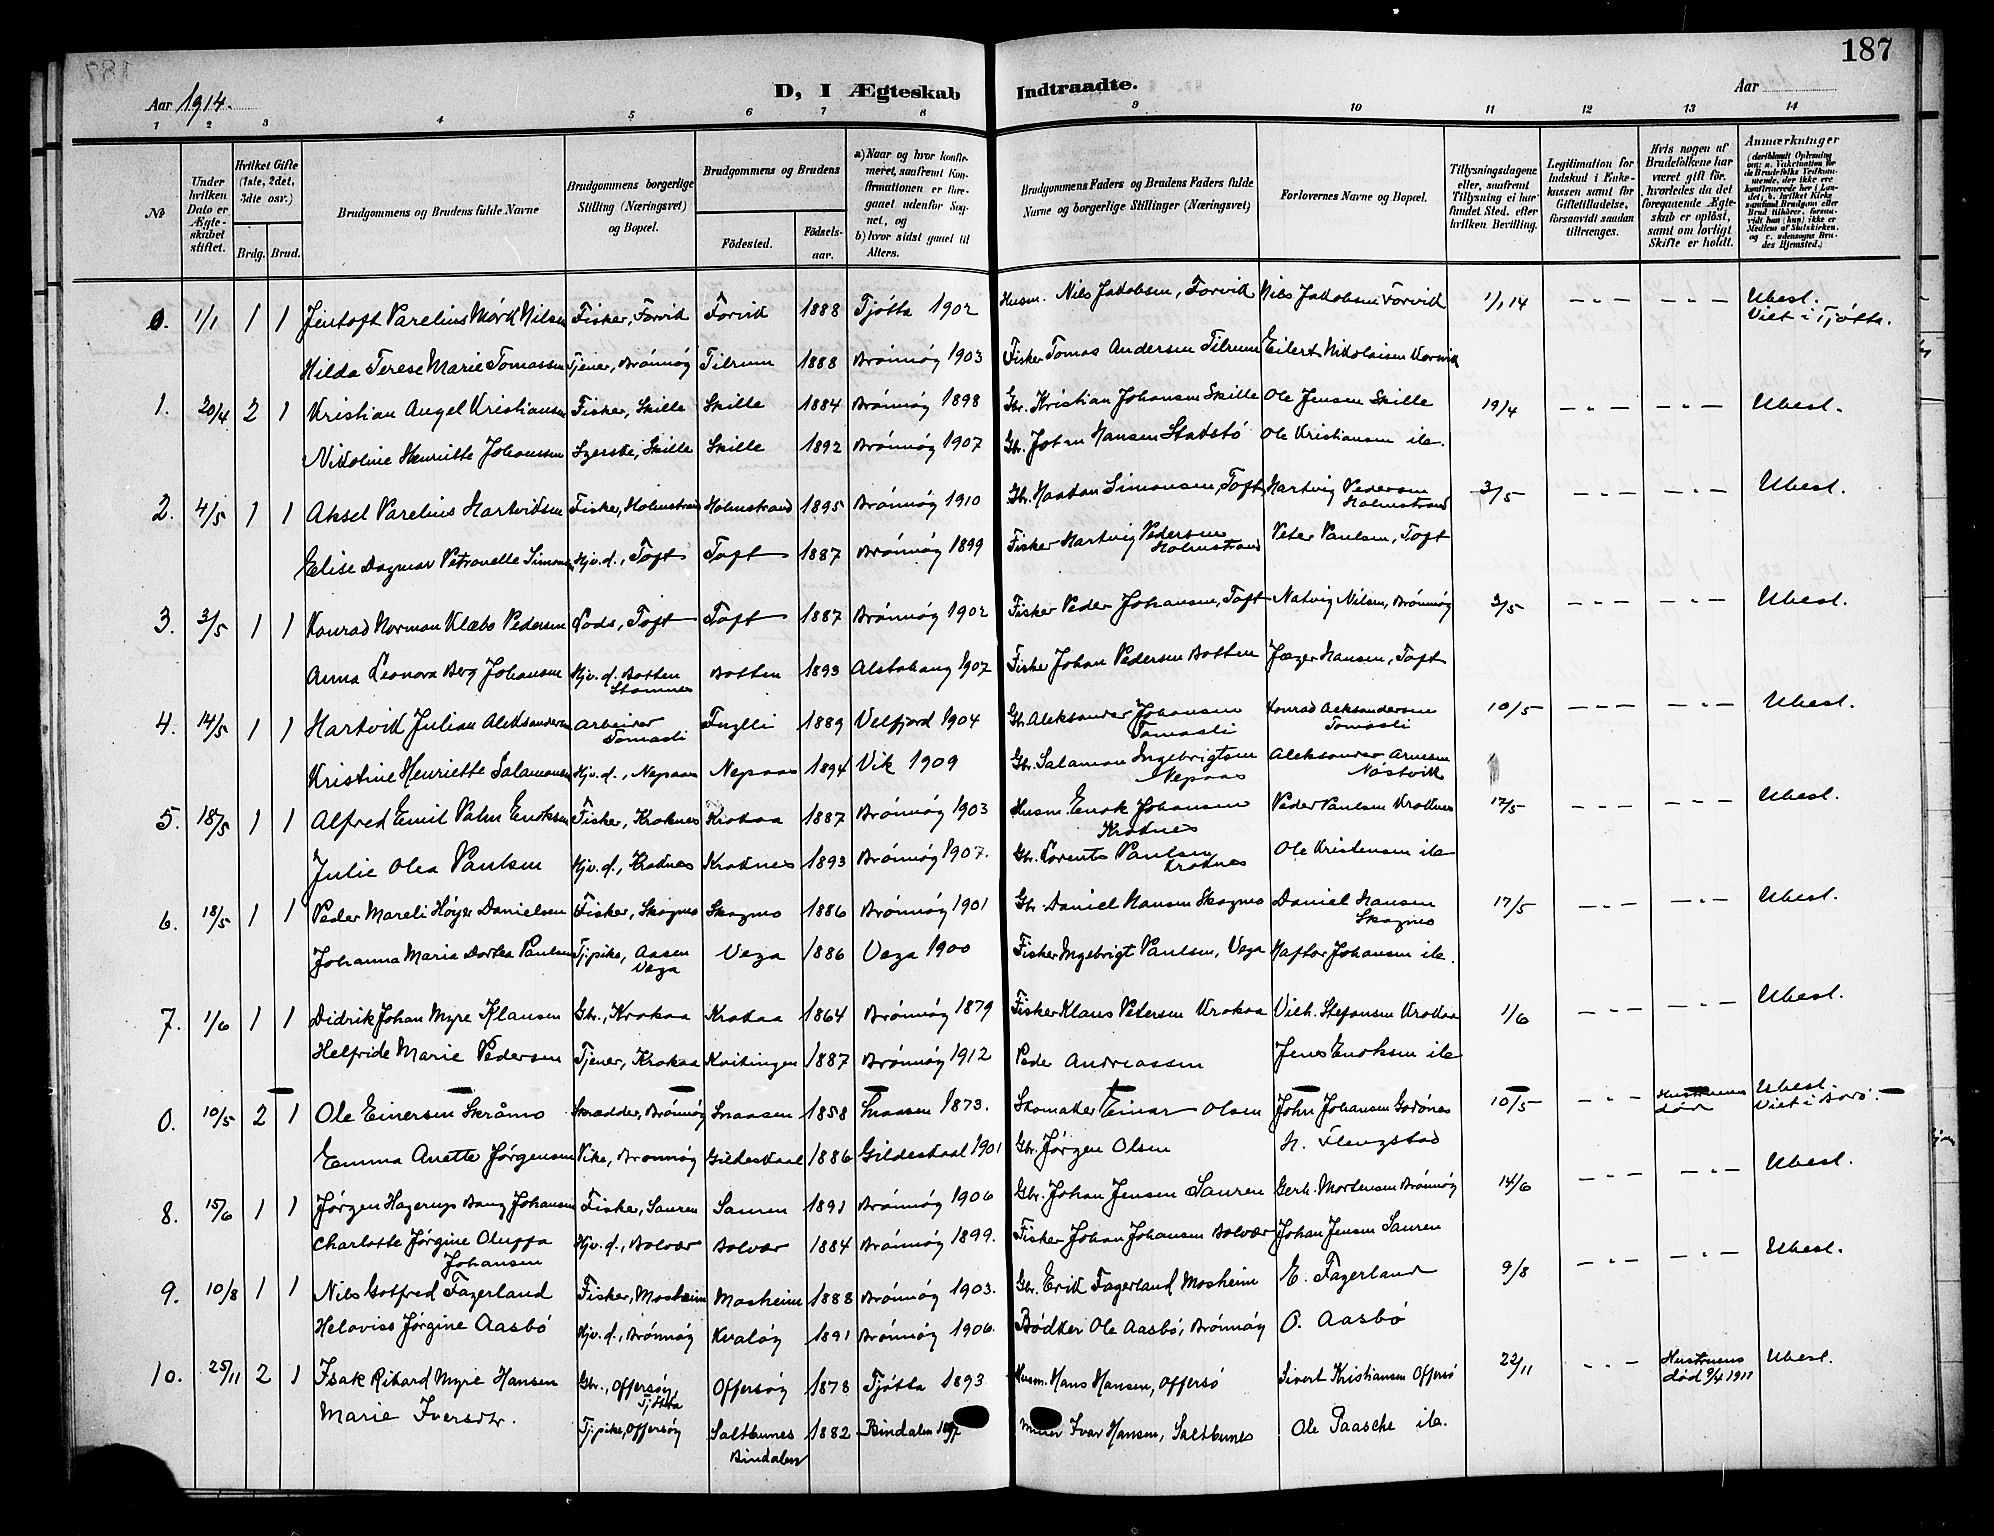 187
Aar 1914. D, I Ægteskab Indtraadte. Aar
1 2 3 4 5 6 7 8 9 10 11 12 13 14
No
Under hvilken Dato er Ægteskabet stiftet.
Hvilket Gifte (1ste, 2det, 3die osv.)
Brdg. Brud.
Brudgommens og Brudens fulde Navne
Brudgommens borgerlige Stilling (Næringsvei) og Bopæl.
Brudgommens og Brudens
Fødested.
Fødselsaar.
a) Naar og hvor konfirmeret, saafremt Konfirmationen er foregaaet udenfor Sognet, og
b) hvor sidst gaaet til Alters.
Brudgommens Faders og Brudens Faders fulde Navne og borgerlige Stillinger (Næringsvei)
Forlovernes Navne og Bopæl.
Tillysningsdagene eller, saafremt Tillysning ei har fundet Sted, efter hvilken Bevilling.
Legitimation for Indskud i Enkekassen samt for Giftetilladelse, forsaavidt saadan tiltrænges.
Hvis nogen af Brudefolkene har været gift før, hvorledes da det foregaaende Ægteskab er opløst, samt om lovligt Skifte er holdt.
Anmærkninger
0. 1/1 1 1 Jentoft Parelius Mørk Nilsen Fisker, Forvik Forvik 1888 Tjøtta 1902 Husm. Nils Jakobsen, Forvik Nils Jakobsen Forvik 1/1 14 — „ — Ubesl. Viet i Tjøtta.
Hilda Terese Marie Tomassen Tjener, Brønnøy Tilrum 1888 Brønnøy 1903 Fisker Tomas Andersen Tilrum Eilert Nikolaisen Vorvik
1. 20/4 2 1 Kristian Angel Kristiansen Fisker, Skille Skille 1884 Brønnøy 1898 Gbr. Kristian Johansen Skille Ole Jensen Skille 19/4 — „ — — „ — Ubesl.
Nikoline Henriette Johanssen Syerske, Skille Skille 1892 Brønnøy 1907 Gb. Johan Hansen Stadstø Ole Kristiansen ib.
2. 4/5 1 1 Aksel Parelius Hartviksen Fisker, Holmstrand Holmstrand 1895 Brønnøy 1910 Gbr. Haakon Simonsen, Toft Hartvig Pedersen Holmstrand 3/5 — „ — — „ — Ubesl.
Elise Dagmar Petronelle Simonsen Hjv.d., Toft Toft 1887 Brønnøy 1899 Fisker Hartvig Pedersen Holmstrand Peter Paulsen, Toft
3. 3/5 1 1 Konrad Norman Klæbo Pedersen Lods, Toft Toft 1887 Brønnøy 1902 Fisker Peder Johansen, Toft Natvig Nilsen, Brønnøy 3/5 — „ — — „ — Ubesl.
Anna Leonora Berg Johansen Hjv.d. Botten Stamnes Botten 1893 Alstahaug 1907 Fisker Johan Pedersen Botten Jæger Hansen, Toft
4. 14/5 1 1 Hartvik Julian Aleksandersen Arbeider Tomasli Fuglli 1889 Velfjord 1904 Gbr. Aleksander Johansen Tomasli Konrad Aleksandersen Tomasli 10/5 — „ — — „ — Ubesl.
Kristine Henriette Salamonsen Hjv.d., Nepaas Nepaas 1894 Vik 1909 Gbr. Salamon Ingebrigtsen Nepaas Aleksander Arnesen Nøstvik
5. 18/5 1 1 Alfred Emil Palm Enoksen Fisker, Kroknes Krokaa 1887 Brønnøy 1903 Husm. Enok Johansen Kroknes Peder Paulsen Kroknes 17/5 — „ — — „ — Ubesl.
Julie Olea Paulsen Hjv.d., Kroknes Kroknes 1893 Brønnøy 1907. Gbr. Lorents Paulsen Kroknes Ole Kristensen ib
6. 18/5 1 1 Peder Mareli Høyer Danielsen Fisker, Skogmo Skogmo 1886 Brønnøy 1901 Gbr Daniel Hansen Skogmo Daniel Hansen Skogmo 17/5 — „ — — „ — Ubesl.
Johanna Maria Dortea Paulsen Tj.pike, Aasen Vega Vega 1886 Vega 1900 Fisker Ingebrigt Paulsen, Vega Haftor Johansen ib.
7. 1/6 1 1 Didrik Johan Myre Klausen Gbr., Krokaa Krokaa 1864 Brønnøy 1879 Fisker Klaus Petersen Krokaa Vilh. Stefansen Krokaa 1/6 — „ — — „ — Ubesl.
Helfride Marie Pedersen Tjener, Krokaa Kvitingen 1887 Brønnøy 1912 Peder Andreassen Jens Enoksen ib
0. 10/5 2 1 Ole Einersen Skråmo Skrædder, Brønnøy Snaasen 1858 Snaasen 1873. Skomaker Einar Olsen John Johansen Godønes 10/5 — „ — Hustruens død Ubesl. Viet i Bodø.
Emma Anette Jørgensen Pike, Brønnøy Gildeskaal 1886 Gildeskaal 1901 Gbr. Jørgen Olsen H. Flengstad
8. 15/6 1 1 Jørgen Hagerup Bang Johansen Fisker, Sauren Sauren 1891 Brønnøy 1906 Gbr. Johan Jensen Sauren Gerh. Mortensen Brønnøy 14/6 — „ — — „ — Ubesl.
Charlotte Jørgine Oluffa Johansen Hjv.d., Bolvær Bolvær 1884 Brønnøy 1899. Fisker Johan Johansen Bolvær Johan Jensen Sauren
9. 10/8 1 1 Nils Gotfred Fagerland Fisker, Mosheim Mosheim 1888 Brønnøy 1903. Gbr. Erik Fagerland Mosheim E. Fagerland 9/8 — „ — — „ — Ubesl.
Heloviss Jørgine Aasbø Hjv.d., Brønnøy Kvaløy 1891 Brønnøy 1906. Bødker Ole Aasbø, Brønnøy O. Aasbø
10. 25/11 2 1 Isak Rikard Myre Hansen Gbr., Offersøy Tjøtta Offersøy 1878 Tjøtta 1893 Husm. Hans Hansen, Offersø Sivert Kristiansen Offersø 22/11 — „ — Hustruens død 9/4 1911 Ubesl.
Marie Iversdtr. Tj.pike, Offersøy Saltbunes Bindalen 1882 Bindalen 1897 Ivar Hansen, Saltbunes Ole Paasche ib.